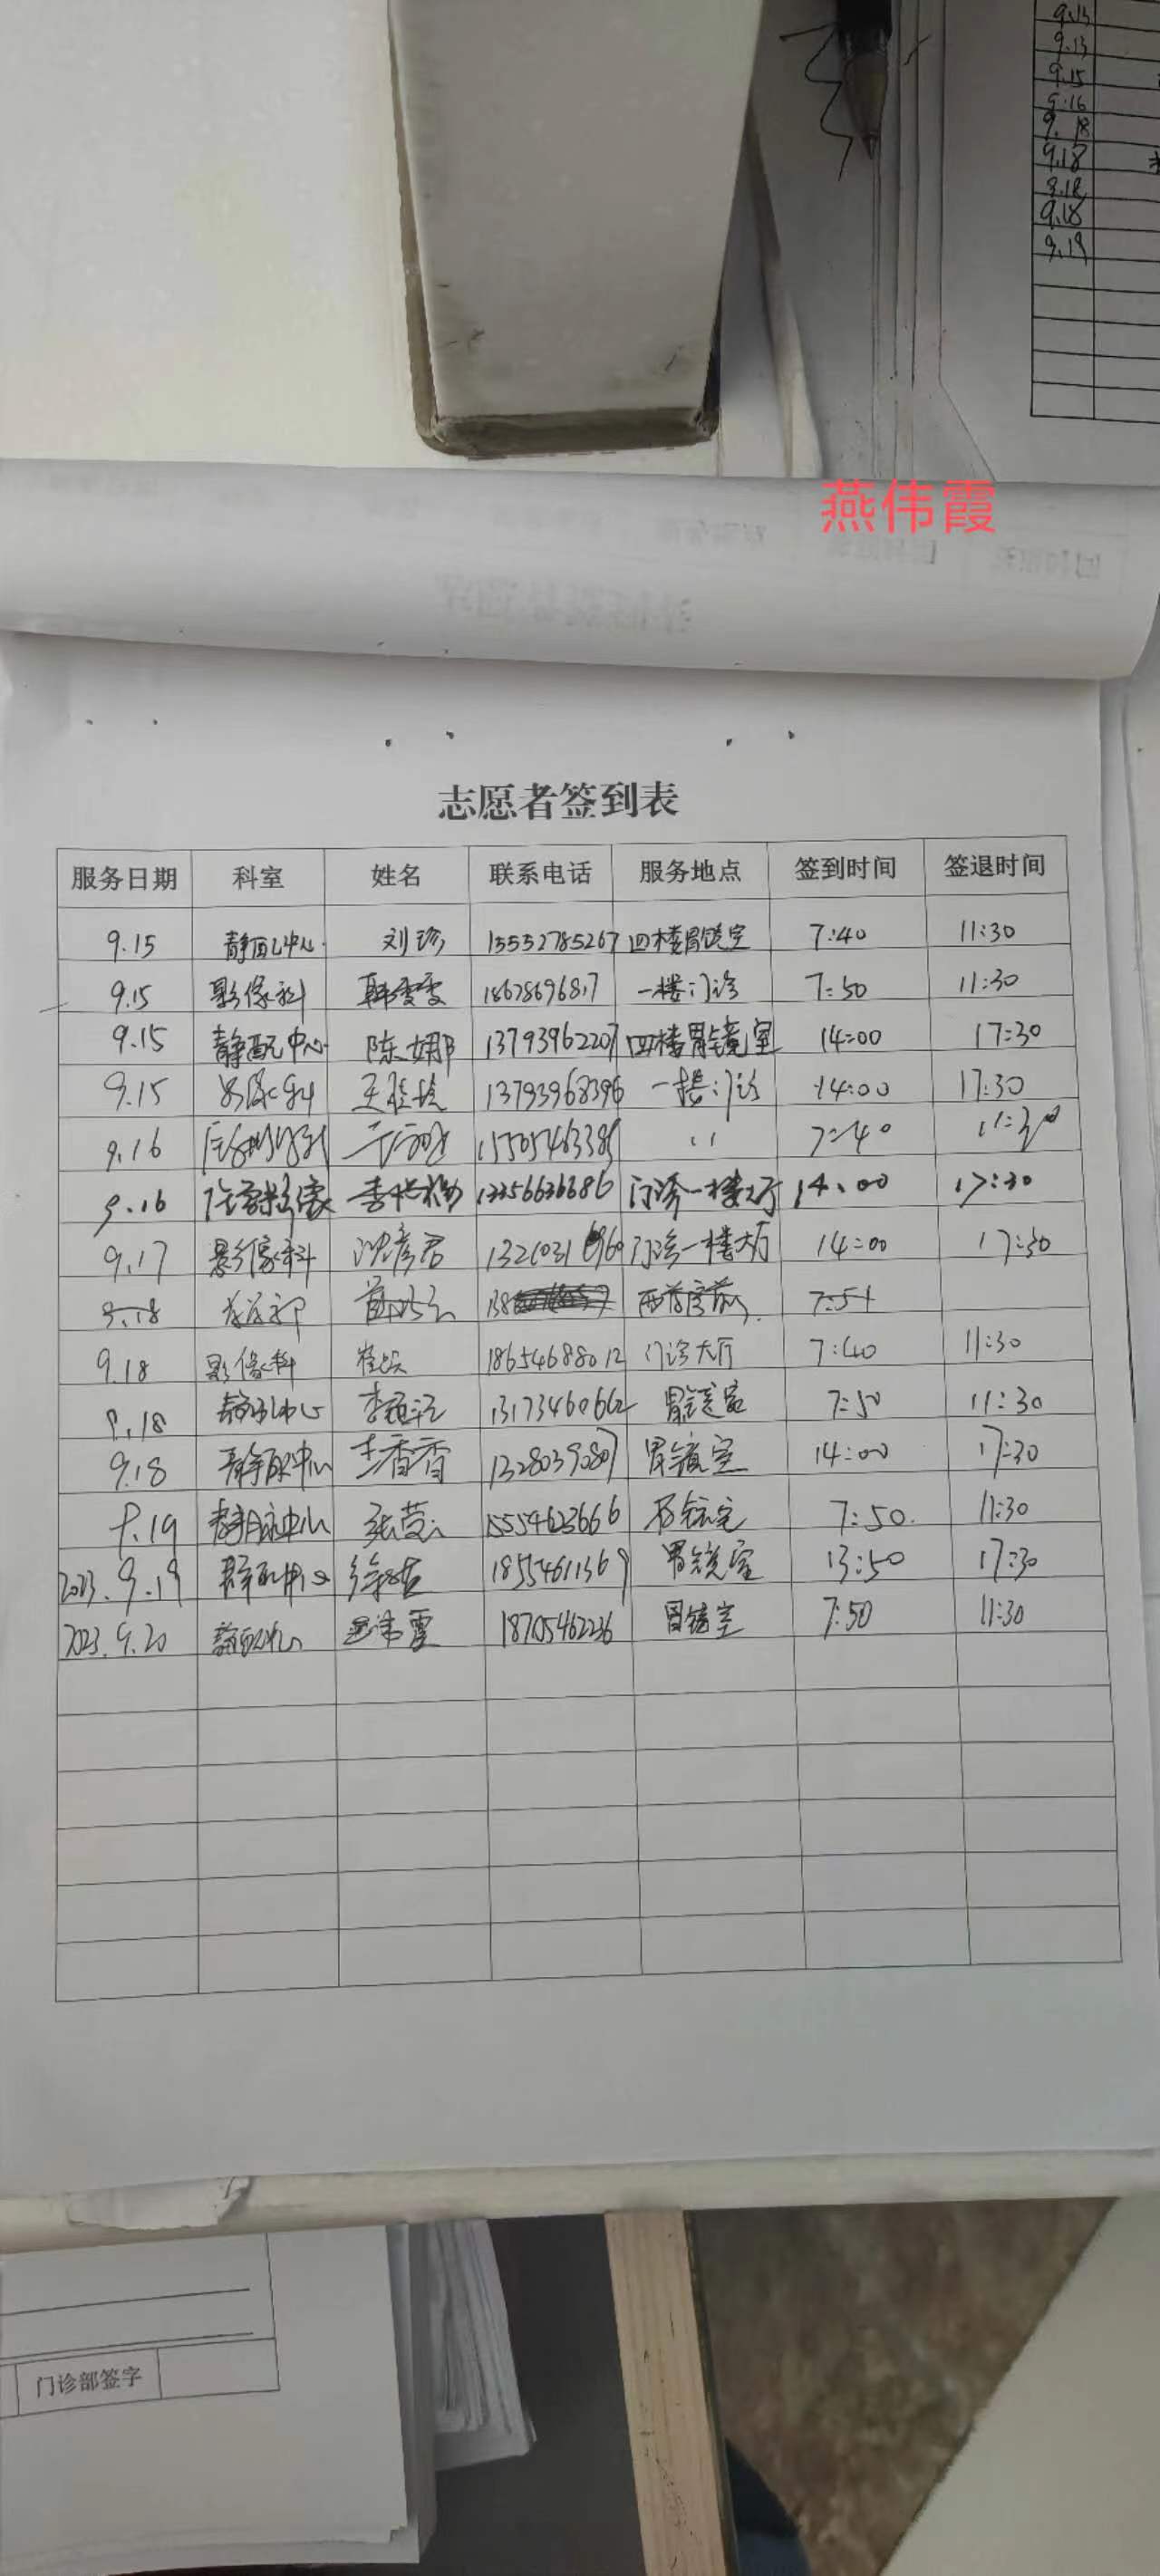 9.13
9.13
9.15
9.16
9.18
9.18
9.18
9.18
9.19
燕伟霞
志愿者签到表
服务日期 科室 姓名 联系电话 服务地点 签到时间 签退时间
9.15 静配中心 刘珍 15552785267 四楼胃镜室 7:40 11:30
9.15 影像科 韩雯雯 18678696817 一楼门诊 7:50 11:30
9.15 静配中心 陈娜 13793962207 四楼胃镜室 14:00 17:30
9.15 13793968396 一楼门诊 14:00 17:30
9.16 7:40 11:30
9.16 13356636686 门诊一楼大厅 14:00 17:30
9.17 影像科 沈彦君 门诊一楼大厅 14:00 17:30
9.18 7:51
9.18 影像科 18654688012 门诊大厅 7:40 11:30
9.18 静配中心 13173460662 胃镜室 7:50 11:30
9.18 静配中心 李香香 13280390807 胃镜室 14:00 17:30
9.19 静配中心 15554623666 胃镜室 7:50 11:30
2023.9.19 静配中心 18554611369 胃镜室 13:50 17:30
2023.9.20 静配中心 燕伟霞 18705462236 胃镜室 7:50 11:30
门诊部签字